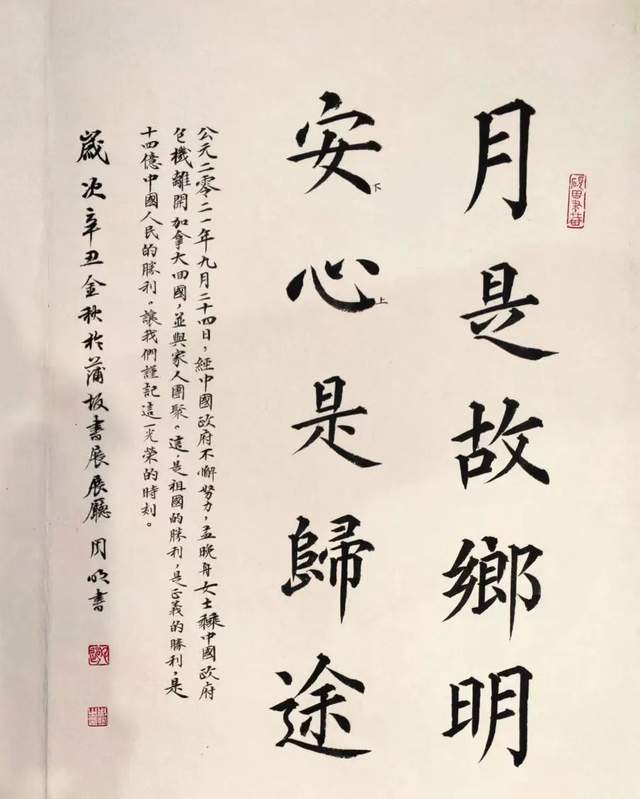 月是故鄉明
安下心上是歸途
公元二零二一年九月二十四日，經中國政府不懈努力，孟晚舟女士乘中國政府
包機離開加拿大回國，並與家人團聚。這是祖國的勝利，是正義的勝利，是
十四億中國人民的勝利。讓我們謹記這一光榮的時刻。
歲次辛丑金秋於蒲坂書展展廳 周明書